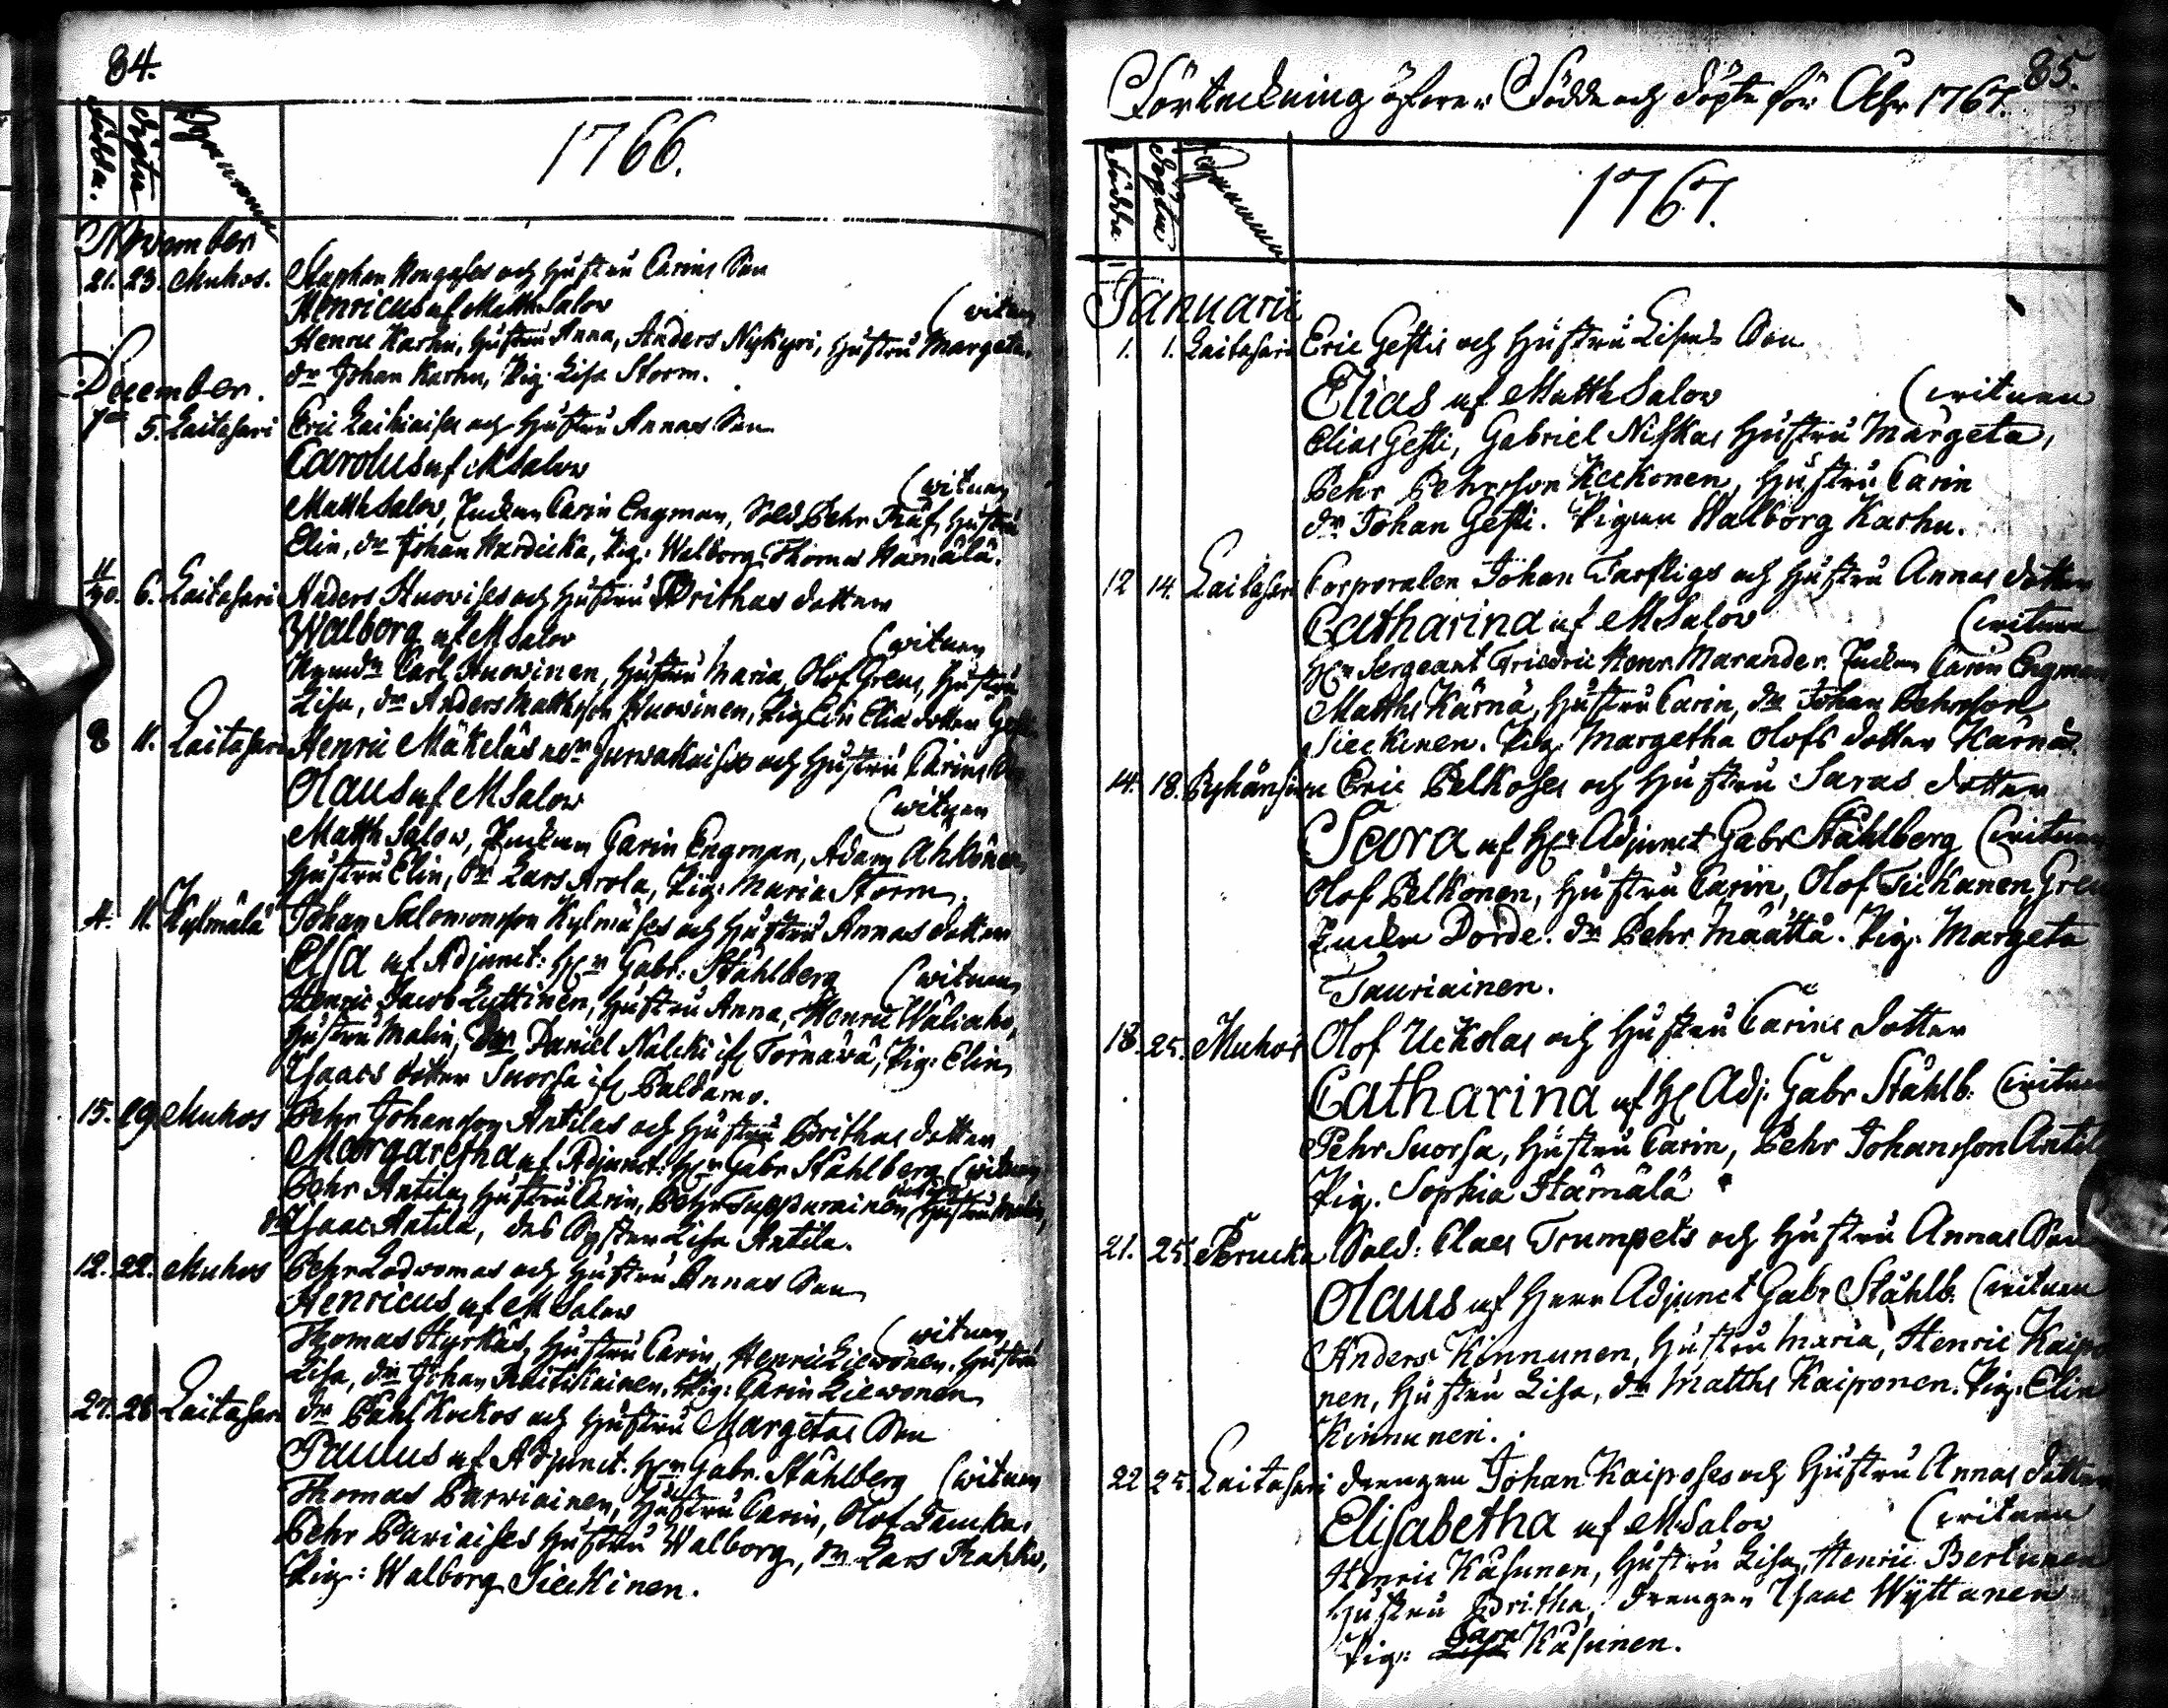 84.
Födda. Döpta Byarnas namn
1766.
November
21. 23. Muhos. Staphan Hongases och Hustru Carins Son
Henricus af Matth Salov (vitnen
Henric Karhu, Hustru Anna, Anders Nykyri, Hustru Margeta,
dr Johan Karhu, Pig. Lisa Storm.
December.
1 5. Laitasari Eric Laikiaises och Hustru Annas Son
Carolus af M Salov (witnen
Matth Salov, Enckan Carin Engman, Sold Pehr Räf, Hustru
Elin, dr Johan Hardicka, Pig: Walborg Thomæ Hämälä.
11/30. 6. Laitasari Anders Huovises och Hustru Brithas dotter
Walborg af M Salov (witnen
Carl Huowinen, Hustru Maria, Olof Greus, Hustru
Lisa, dr Anders Matthsson Huowinen, Pig Elin Eliæ dotter
8 11. Laitasari Henric Mäkeläs och Hustru Carins Son
Olaus af M Salov (witnen
Matth Salov, Enckan Carin Engman, Adam Ahkonen
Hustru Elin, dr Lars Arola, Pig: Maria Storm
4. 11. Kylmälä Johan Salomonsson Kylmäses och Hustru Annas dotter
Elsa af Adjunct: Hr Gabr: Ståhlberg (witnen
Henric Jacob Lyttinen, Hustru Anna, Henric Wäliaho,
Hustru Malin, Dr Daniel Nalcki if Törnävä, Pig: Elin
Isaacs dotter Suorsa if Paldamo.
15. 19. Muhos Pehr Johansson Antilas och Hustru Brithas dotter
Margaretha af Adjunct: Hr Gabr Ståhlberg (witnen
Pehr Antila, Hustru Carin, Pehr Tuppurainen Hustru Malin,
dr Isaac Antila, des Syster Lisa Antila.
12. 22. Muhos Pehr Lodwomas och Hustru Annas Son
Henricus af M Salov (witnen
Thomas Hyrkäs, Hustru Carin, Henric Liewonen, Hustru
Lisa, dr Johan Raitiskainen, Pig: Carin Liewonen
27. 28 Laitasari dr Påhl Kockos och Hustru Margetas Son
Paulus af Adjunct. Hr Gabr. Ståhlberg (witnen
Thomas Parviainen, Hustru Carin, Olof Lamcka,
Pehr Pariaises Hustru Walborg, dr Lars Rahko,
Pig: Walborg Sieckinen.
85.
Förteckning öfver Födde och döpte för Åhr 1767.
Födda Döpta Byarnas namn
1767.
Januarii
1. 1. Laitasari Eric Gestis och Hustru Lisas Son
Elias af Matth Salov (witnen
Elias Gesti, Gabriel Niskas Hustru Margeta,
Pehr Pehrsson Keckonen, Hustru Carin
dr Johan Gesti. Pigan Walborg Karhu.
12 14. Laitasari Corporalen Johan Farstigs och Hustru Annas dotter
Catharina af M Salov (witnen
Hr Sergeant Friedric Henr. Marander. Enckan Carin Engman
Matths Kärnä, Hustru Carin, dr Johan Pehrsson
Sieckinen. Pig. Margetha Olofs dotter Kärnä.
14. 18. Pyhänsivu Eric Pelkoses och Hustru Saras dotter
Scara af Hr Adjunct Gabr Ståhlberg (witnen
Olof Pelkonen, Hustru Carin, Olof Tickanen
Enckan Dorde. dr Pehr Määttä. Pig: Margeta
Tauriainen.
18. 25. Muhos Olof Uckolas och Hustru Carins dotter
Catharina af Hr Adj. Gabr Ståhlb: (witnen
Pehr Suorsa, Hustru Carin, Pehr Johansson Antila
Pig. Sophia Hämälä
21. 25. Brucka Sold: Claes Trumpets och Hustru Annas Son
Olaus af Herr Adjunct Gabr Ståhlb. (witnen
Anders Kinnunen, Hustru Maria, Henric Kaipo
nen, Hustru Lisa, dr Matths Kaiponen. Pig: Elin
Kinnunen.
22 25. Laitasari drengen Johan Kaiposes och Hustru Annas dotter
Elisabetha af M Salov (witnen
Henric Käsunen, Hustru Lisa, Henric Bertunen
Hustru Britha, drengen Isaac Wyttanen
Pig: Sara Käsunen.